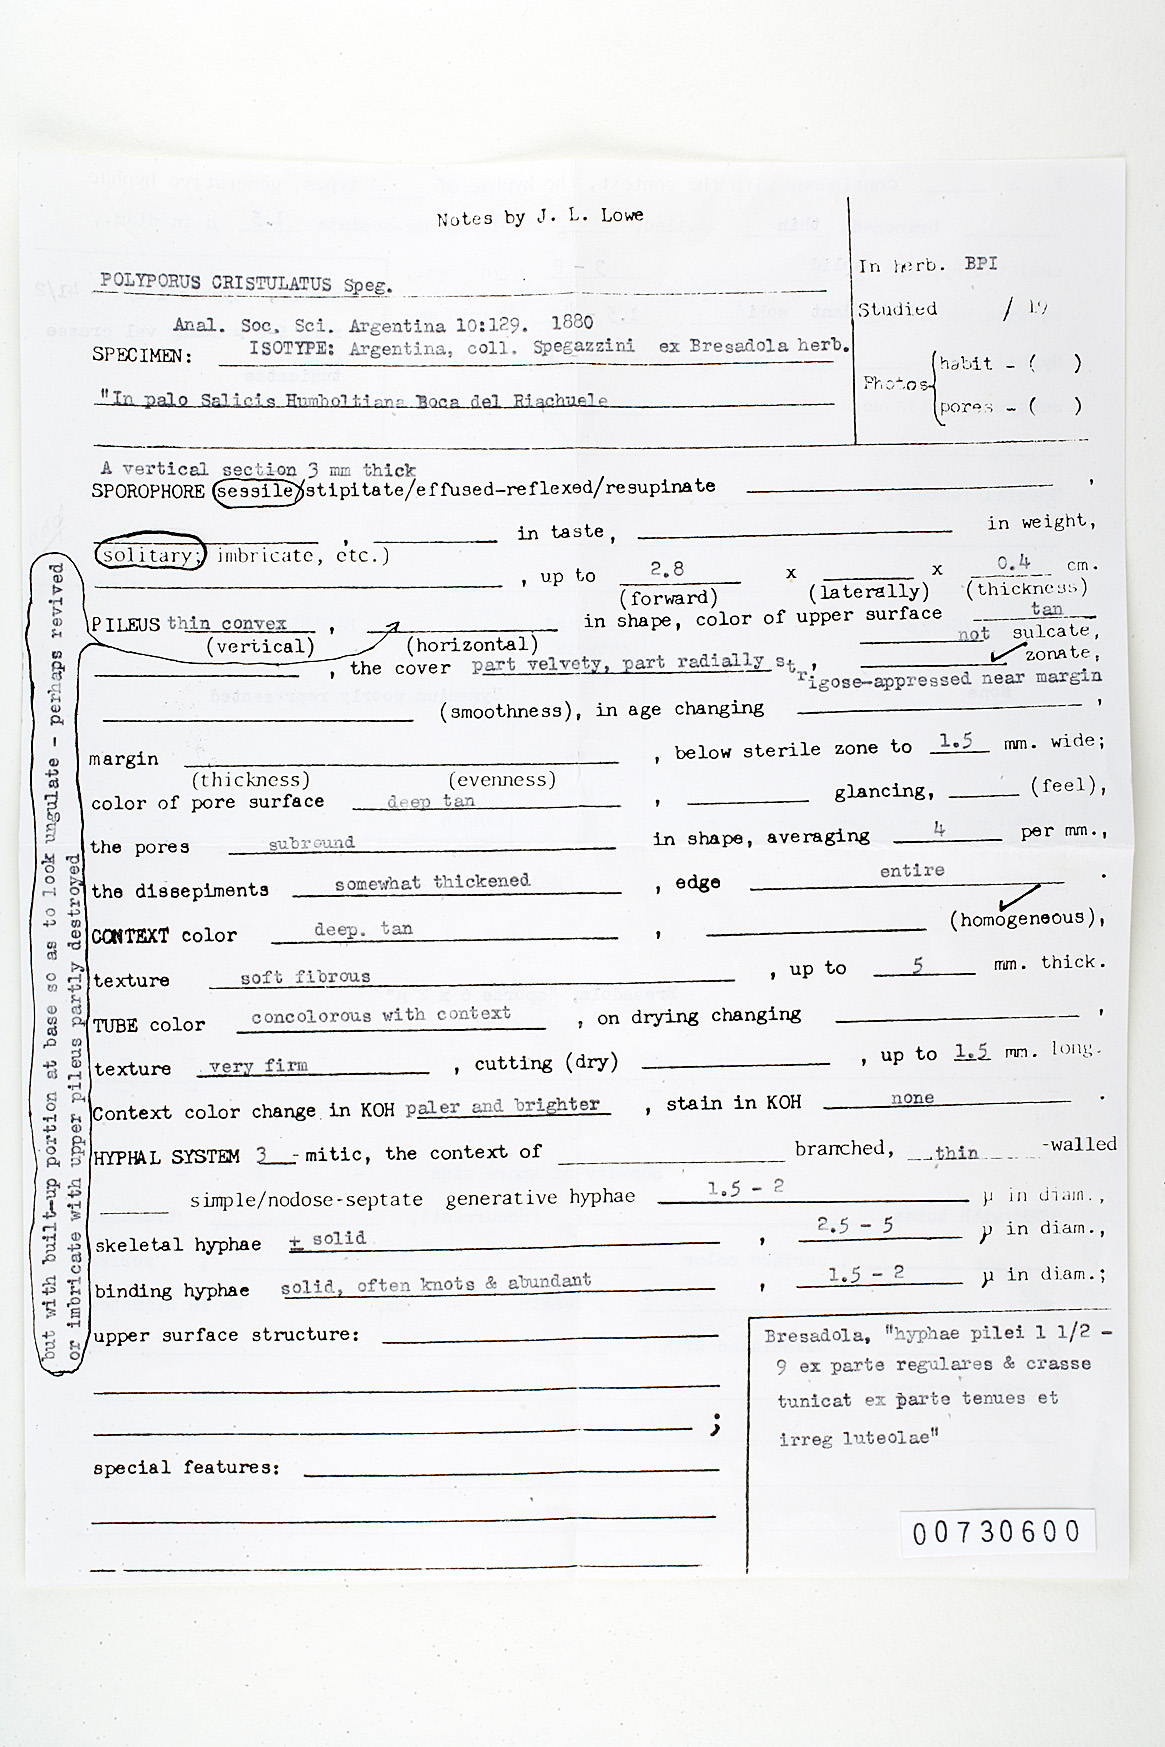 Notes by J. L. Lowe
POLYPORUS CRISTULATUS Speg.
Anal. Soc. Sci. Argentina 10:129. 1880
SPECIMEN: ISOTYPE: Argentina, coll. Spegazzini ex Bresadola herb.
"In palo Salicis Humboltiana Boca del Riachuele
In herb. BPI
Studied / 19
Photos
habit - ( )
pores - ( )
A vertical section 3 mm thick
SPOROPHORE sessile/stipitate/effused-reflexed/resupinate ,
, in taste, in weight,
(solitary; imbricate, etc.)
, up to 2.8 x x 0.4 cm.
(forward) (laterally) (thickness)
PILEUS thin convex , in shape, color of upper surface tan
(vertical) (horizontal) not sulcate,
, the cover part velvety, part radially st , ✓ zonate,
rigose-appressed near margin
(smoothness), in age changing ,
margin , below sterile zone to 1.5 mm. wide;
(thickness) (evenness)
color of pore surface deep tan , glancing, (feel),
the pores subround in shape, averaging 4 per mm.,
the dissepiments somewhat thickened , edge entire .
CONTEXT color deep. tan , ✓ (homogeneous),
texture soft fibrous , up to 5 mm. thick.
TUBE color concolorous with context , on drying changing ,
texture very firm , cutting (dry) , up to 1.5 mm. long.
Context color change in KOH paler and brighter , stain in KOH none .
HYPHAL SYSTEM 3 -mitic, the context of branched, thin -walled
simple/nodose-septate generative hyphae 1.5 - 2 µ in diam.,
skeletal hyphae ± solid , 2.5 - 5 µ in diam.,
binding hyphae solid, often knots & abundant , 1.5 - 2 µ in diam.;
upper surface structure:
;
special features:
but with built-up portion at base so as to look ungulate - perhaps revived
or imbricate with upper pileus partly destroyed
Bresadola, "hyphae pilei 1 1/2 -
9 ex parte regulares & crasse
tunicat ex parte tenues et
irreg luteolae"
00730600